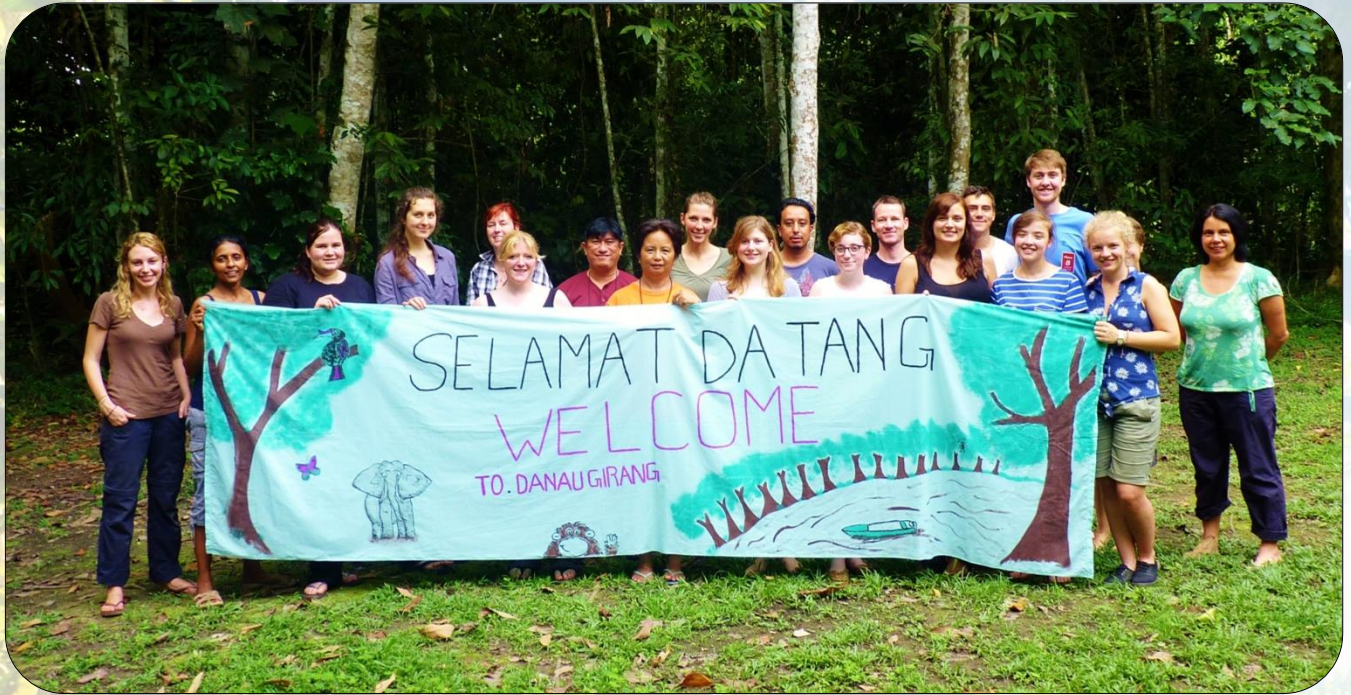 SELAMAT DATANG
WELCOME
TO. DANAU GIRANG